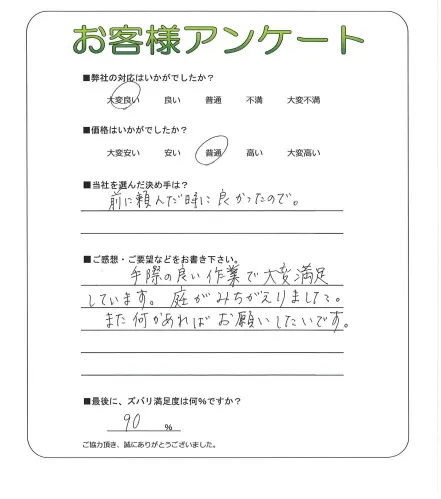 お客様アンケート
■弊社の対応はいかがでしたか？
大変良い 良い 普通 不満 大変不満
■価格はいかがでしたか？
大変安い 安い 普通 高い 大変高い
■当社を選んだ決め手は？
前に頼んだ時に良かったので。
■ご感想・ご要望などをお書き下さい。
手際の良い作業で大変満足
しています。庭がみちがえりました。
また何かあればお願いしたいです。
■最後に、ズバリ満足度は何％ですか？
90 ％
ご協力頂き、誠にありがとうございました。